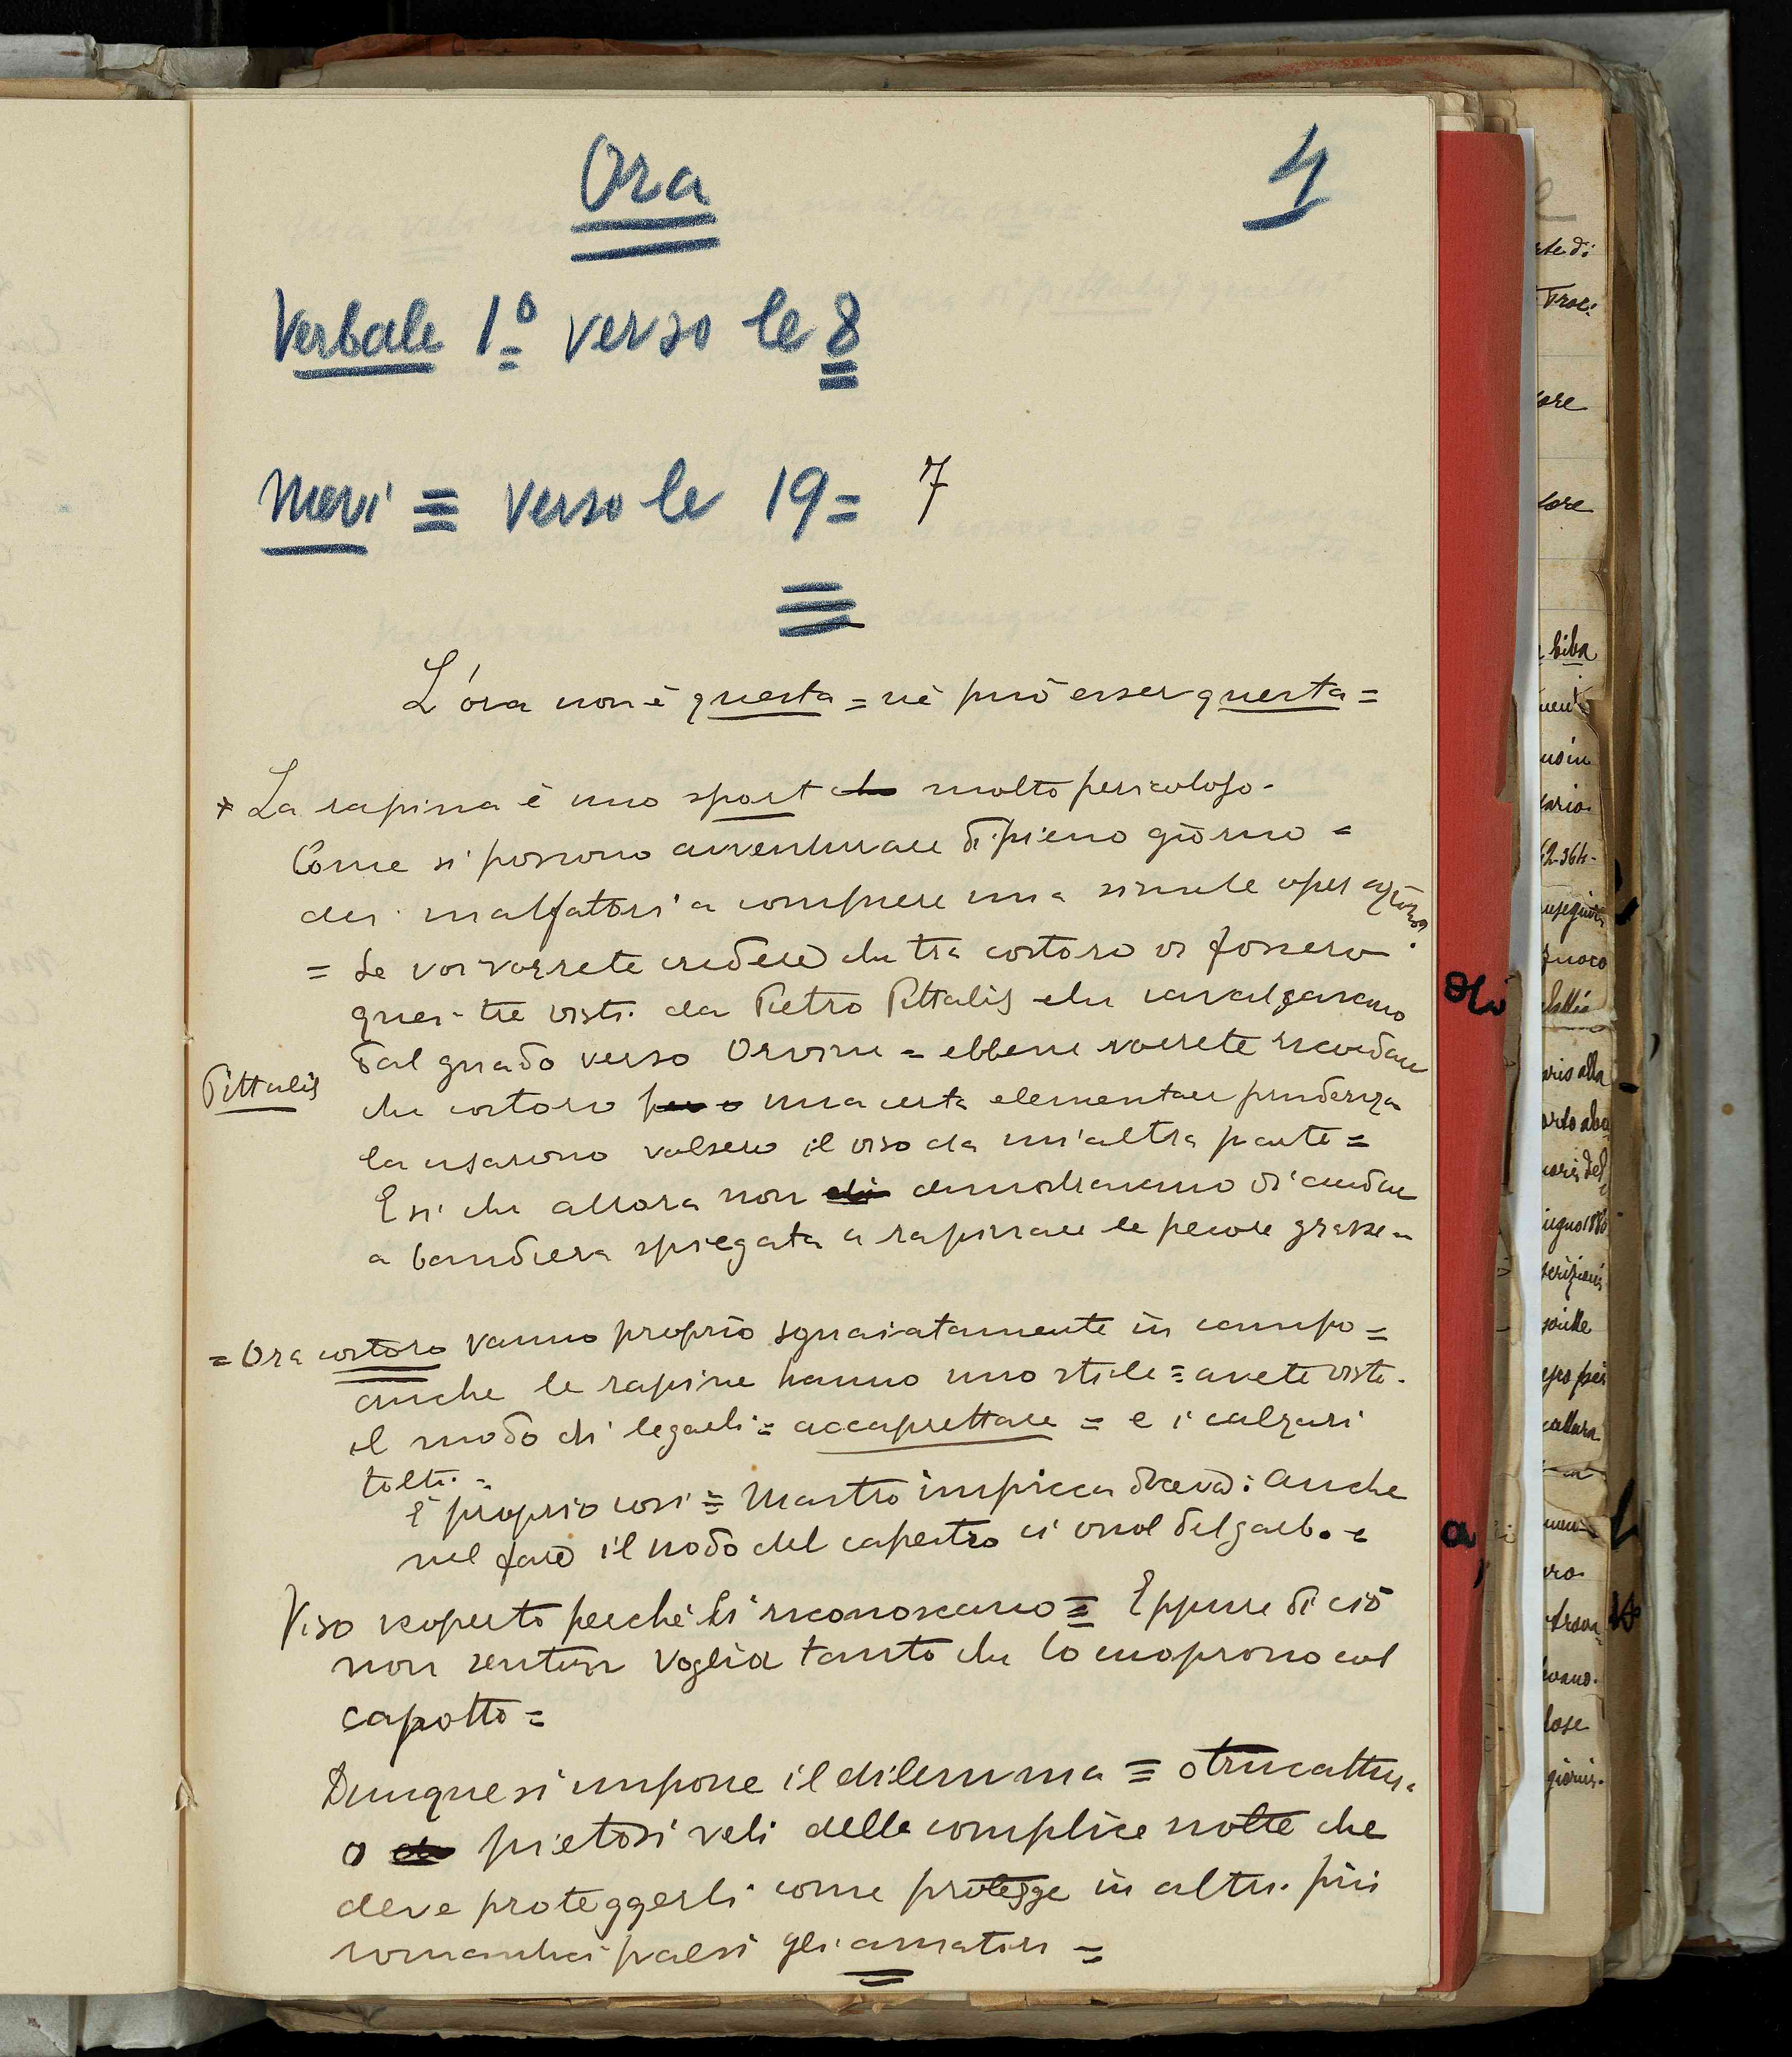 Ora
4
Verbale 1º verso le 8
Mervi = verso le 19 = 7
L'ora non è questa = nè può esser questa =
* La rapina è uno sport molto pericoloso -
Come si possono avventurare di pieno giorno =
dei malfattori a compiere una simile operazione?
= Se voi vorrete credere che tra costoro vi fossero
quei tre visti da Pietro Pittalis che cavalcavano
dal guado verso = ebbene vorrete ricordare
Pittalis
che costoro una certa elementare prudenza
la usarono volsero il viso da un'altra parte =
E sì che allora non dimostravano di andare
a bandiera spiegata a rapinare le pecore grasse =
= Ora costoro vanno proprio sguaiatamente in campo =
anche le rapine hanno uno stile = avete visto
il modo di legarli = accaprettare = e i calzari
tolti =
È proprio così = Mastro impicca diceva: anche
nel fare il nodo del capestro ci vuol del garbo =
Viso scoperto perchè li riconoscano = Eppure di ciò
non senton voglia tanto che lo cuoprono col
capotto =
Dunque si impone il dilemma = o truccature
o pietosi veli della complice notte che
deve proteggerli come protegge in altri più
romantici paesi gli amatori =